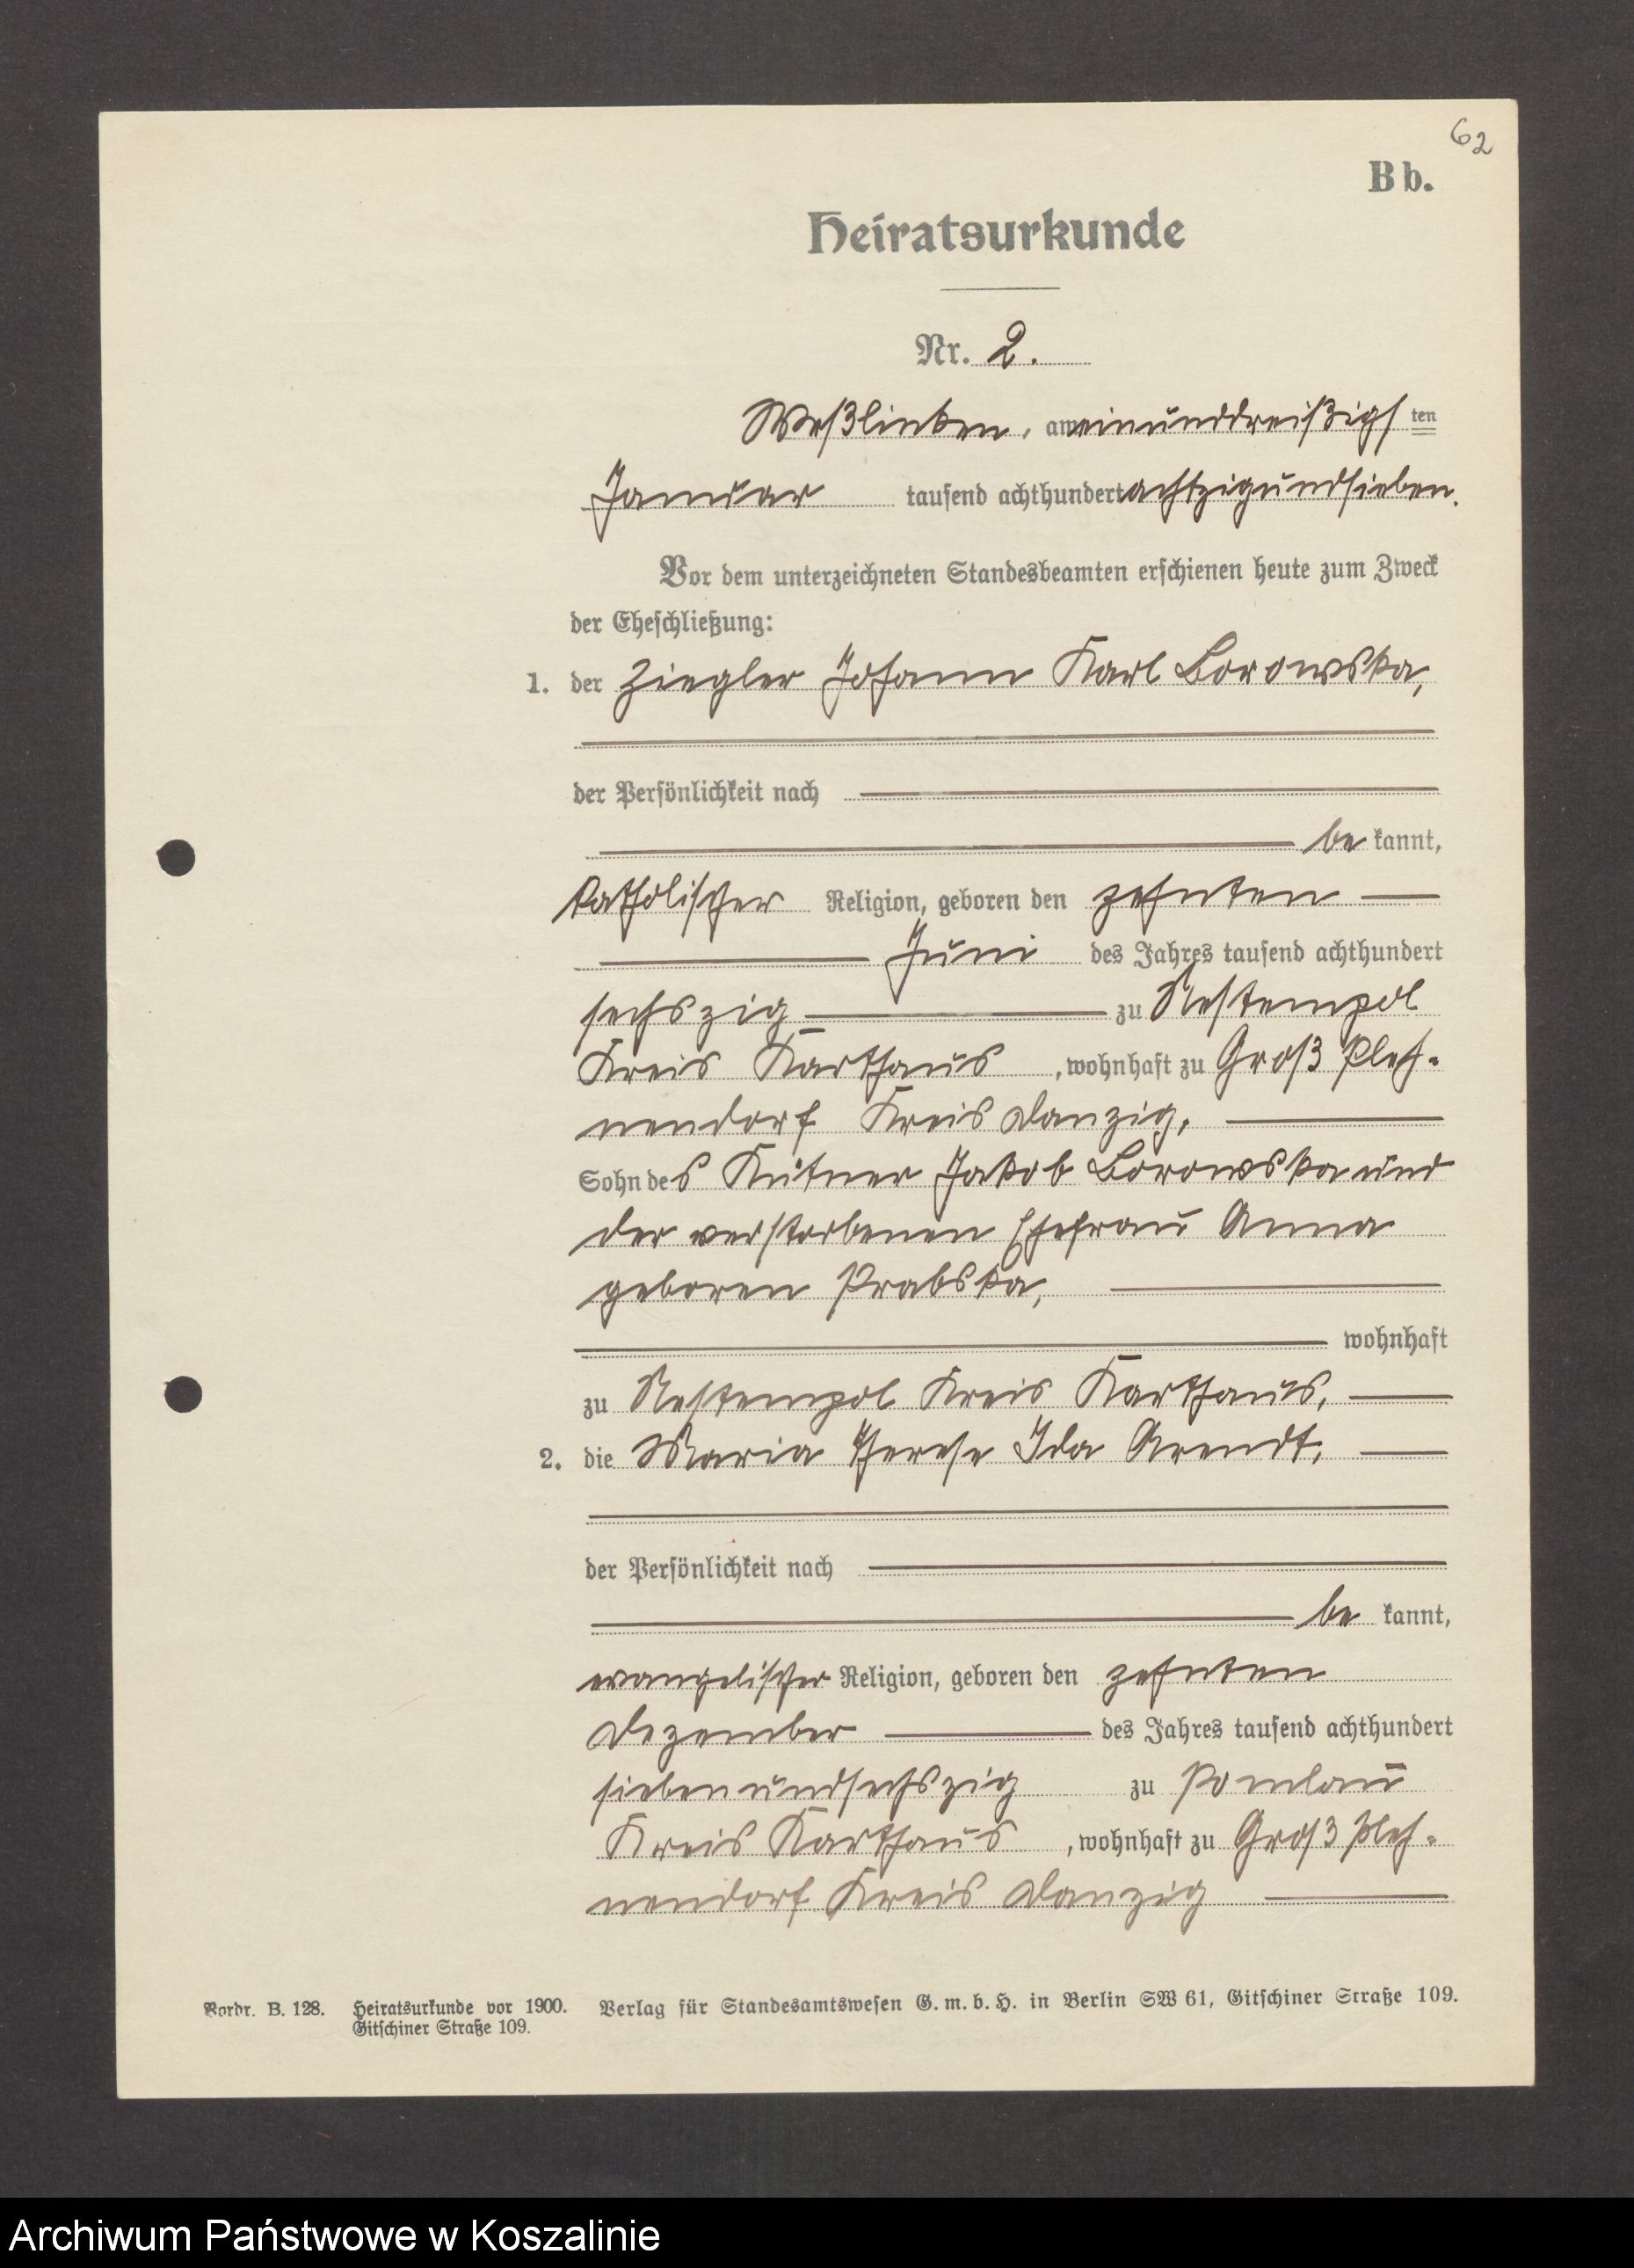 62
B b.
Heiratsurkunde
Nr. 2.
Weßlinken, am einunddreißigs ten
Januar tausend achthundert achtzigundsieben.
Vor dem unterzeichneten Standesbeamten erschienen heute zum Zweck
der Eheschließung:
1. der Ziegler Johann Karl Borowska,
der Persönlichkeit nach
be kannt,
katholischer Religion, geboren den zehnten
Juni des Jahres tausend achthundert
sechszig zu Nestempol
Kreis Karthaus, wohnhaft zu Groß Pleh-
nendorf Kreis Danzig,
Sohn des Kätner Jakob Borowska und
der verstorbenen Ehefrau Anna
geboren Prabska,
wohnhaft
zu Nestempol Kreis Karthaus,
2. die Maria Therese Ida Arendt,
der Persönlichkeit nach
be kannt,
evangelischer Religion, geboren den zehnten
Dezember des Jahres tausend achthundert
siebenundsechszig zu Pomlau
Kreis Karthaus, wohnhaft zu Groß Pleh-
nendorf Kreis Danzig
Vordr. B. 128. Heiratsurkunde vor 1900. Verlag für Standesamtswesen G. m. b. H. in Berlin SW 61, Gitschiner Straße 109.
Gitschiner Straße 109.
Archiwum Państwowe w Koszalinie